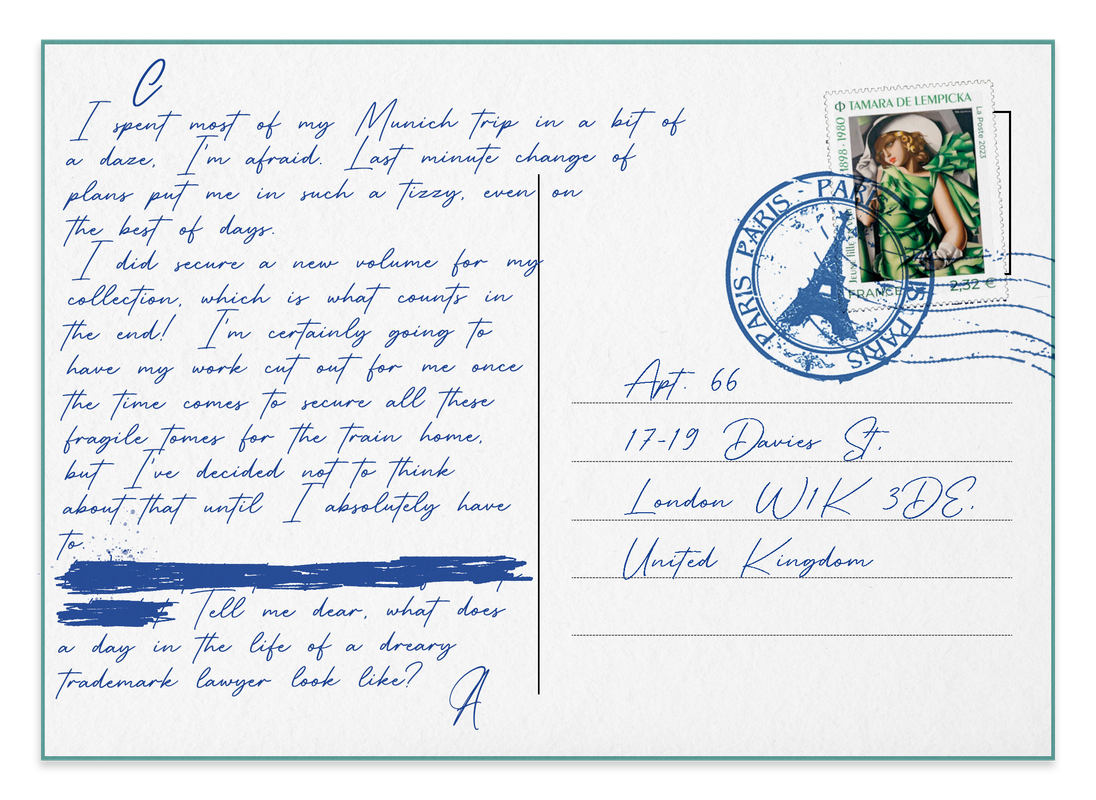 C
I spent most of my Munich trip in a bit of
a daze, I'm afraid. Last minute change of
plans put me in such a tizzy, even on
the best of days.
I did secure a new volume for my
collection, which is what counts in
the end! I'm certainly going to
have my work cut out for me once
the time comes to secure all these
fragile tomes for the train home,
but I've decided not to think
about that until I absolutely have
to.
Tell me dear, what does
a day in the life of a dreary
trademark lawyer look like?
A
TAMARA DE LEMPICKA
1898 - 1980
La Poste 2023
FRANCE
2,32 €
PARIS - PARIS - PARIS - PARIS
Apt. 66
17-19 Davies St.
London W1K 3DE.
United Kingdom